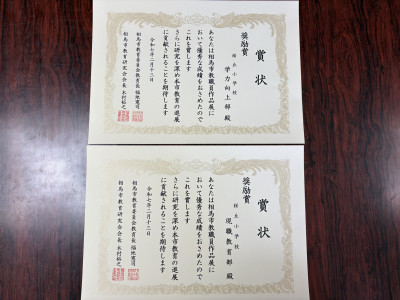 賞状
奨励賞
桜丘小学校
学力向上部 殿
あなたは相馬市教職員作品展に
おいて優秀な成績をおさめたので
これを賞します
さらに研究を深め本市教育の進展
に貢献されることを期待します
令和七年二月十三日
相馬市教育委員会教育長 福地憲司
相馬市教育研究会会長 木村裕之
賞状
奨励賞
桜丘小学校
現職教育部 殿
あなたは相馬市教職員作品展に
おいて優秀な成績をおさめたので
これを賞します
さらに研究を深め本市教育の進展
に貢献されることを期待します
令和七年二月十三日
相馬市教育委員会教育長 福地憲司
相馬市教育研究会会長 木村裕之